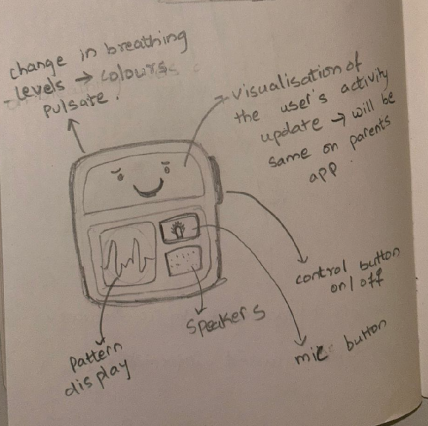 change in breathing
levels → colours
pulsate.
visualisation of
the user's activity
update → will be
same on parents
app.
control button
on/off
mic button
speakers
pattern
display